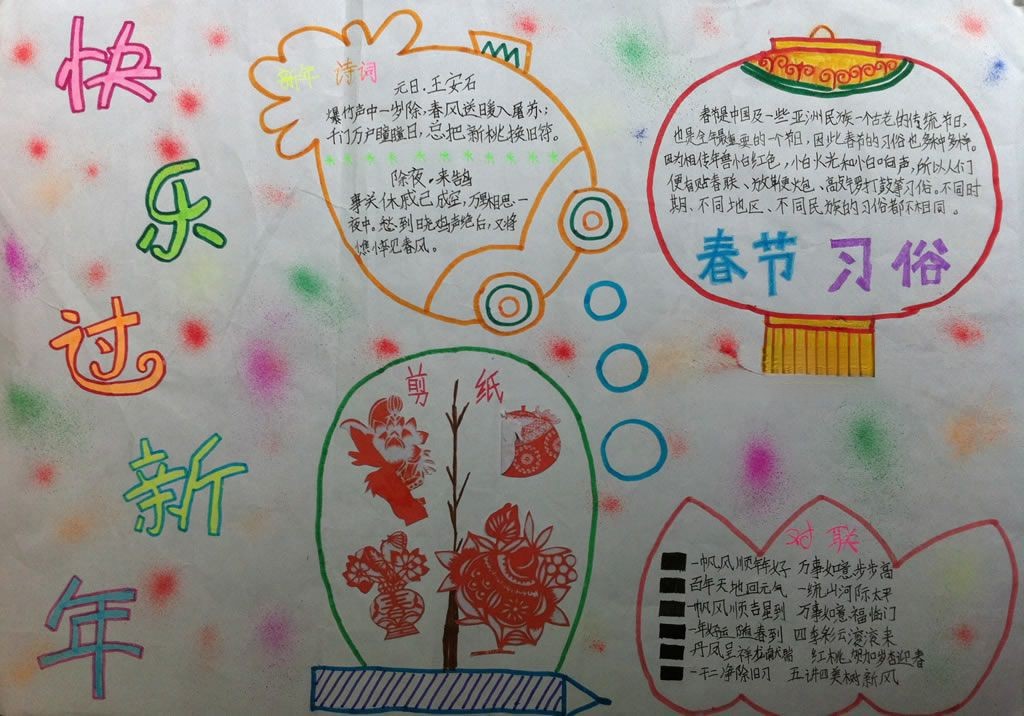 快乐过新年
新年 诗词
元日.王安石
爆竹声中一岁除,春风送暖入屠苏;
千门万户曈曈日,总把新桃换旧符。
除夜.来鹄
事关休戚已成空,万里相思一
夜中。愁到晓鸡声绝后,又将
憔悴见春风。
春节是中国及一些亚洲民族一个古老的传统节日,
也是全年最重要的一个节日,因此春节的习俗也多种多样。
因为相传年兽怕红色,怕火光和怕响声,所以人们
便有贴春联、放鞭炮、敲锣打鼓等习俗。不同时
期、不同地区、不同民族的习俗都不相同。
春节 习俗
剪纸
对联
一帆风顺年年好 万事如意步步高
百年天地回元气 一统山河际太平
一帆风顺吉星到 万事如意福临门
一年好运随春到 四季彩云滚滚来
丹凤呈祥龙献瑞 红桃贺加岁杏迎春
一干二净除旧习 五讲四美树新风